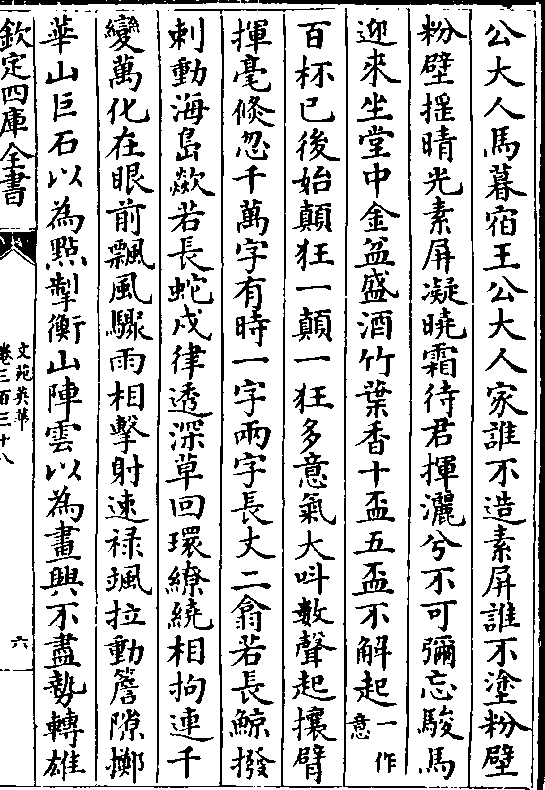 公大人馬暮宿王公大人家誰不造素屏誰不塗粉壁
粉壁揺晴光素屏凝曉霜待君揮灑兮不可彌忘駿馬
迎來坐堂中金盆盛酒竹葉香十盃五盃不解起一作意
百杯已後始顛狂一顛一狂多意氣大呌數聲起攘臂
揮毫倐忽千萬字有時一字兩字長丈二翕若長鯨撥
刺動海島歘若長蛇戍律透深草回環繚繞相拘連千
變萬化在眼前飄風驟雨相擊射速禄颯拉動簷隙擲
華山巨石以為點掣衡山陣雲以為畫興不盡勢轉雄
欽定四庫全書
文苑英華
卷三百三十八
六